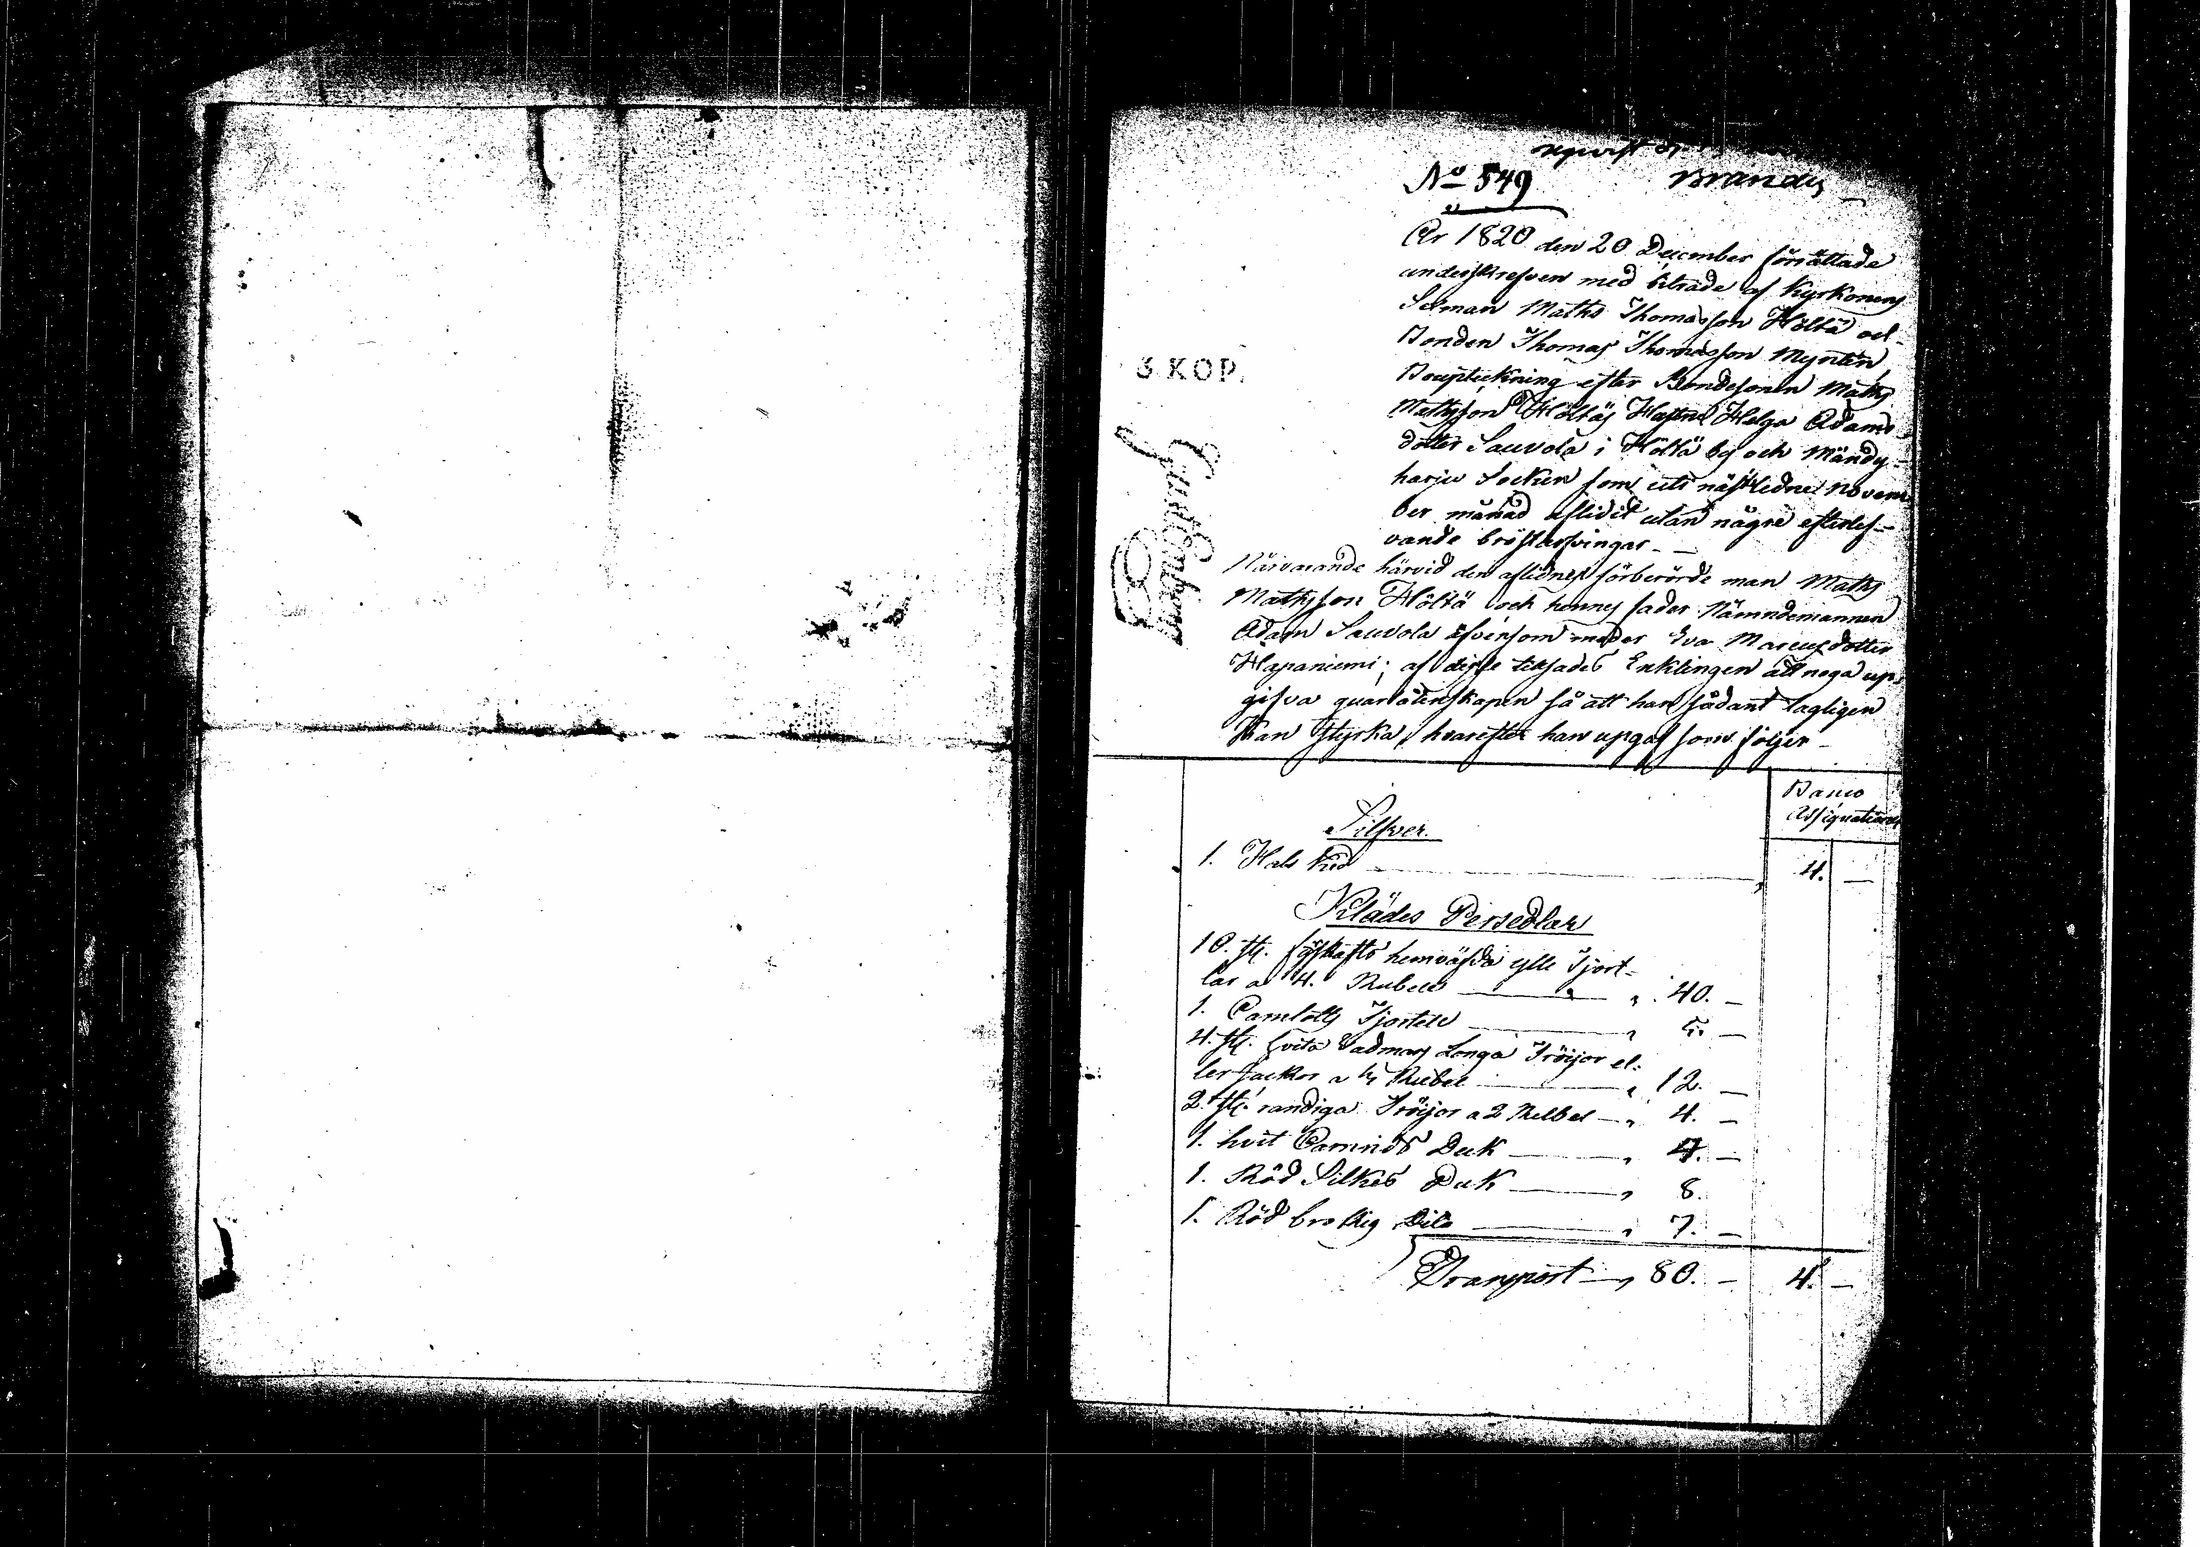 Brandes
No 549
År 1820 den 20 December förrättade
underskrefven med biträde af Kyrkones
Sexman Maths Thomasson Höltä och
Bonden Thomas Thomasson Myntin
Bouptekning efter Bondesonen Maths
Mathsson Höltäs Hustru Helga Adams
dotter Sauvola i Höltä by och Mändy-
harju Sockn som uti näst ledne novem
ber månad aflidit utan någre efterlef-
vande bröstarfvingar. —
Närvarande härvid den aflidnes förberörde man Maths
Mathsson Höltä och hennes fader Nämndemannen
Adam Sauvola äfvensom moder Eva Marcusdotter
Hapaniemi; af desse tilsades Enklingen att noga up-
gifva quarlåtenskapen så att han sådant lagligen
Kan styrka, hvarefter han upgaf som följer —
3 KOP.
Banco
Assignationer
Silfver.
1. Hals Ked — 4. —
Klädes Persedlar
10. st. hemväfda ylle Tjort-
lar a 4. Rubel — " 40. —
1. Camlotts Tjortel — " 5. —
4. st. hvita Vadmans Longa Tröijor el-
ler Jackor a 3 Rubel — " 12. —
2. st. randiga Tröijor a 2 Rubel — " 4. —
1. hvit Duk — " 4. —
1. Röd Silkes Duk — " 8.
1. Röd brokig Dito — " 7. —
Transport — " 80. — 4. —